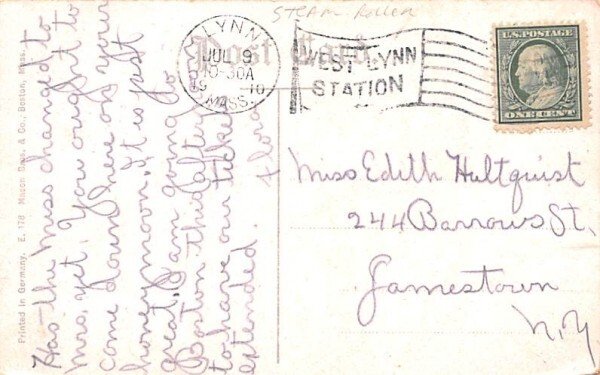 STEAM Roller
Post Card
LYNN
JUL 9
10-30A
19 10
MASS.
WEST LYNN
STATION
U.S. POSTAGE
ONE CENT
Has the Miss changed to
Mrs. yet. You ought to
come down here on your
honeymoon, it is just
great. I am going to
Boston this after
to have our ticket
extended.
Miss Edith Hultquist
244 Barrows St.
Jamestown
N.Y
Printed in Germany. E. 178 Mason Bros. & Co., Boston, Mass.